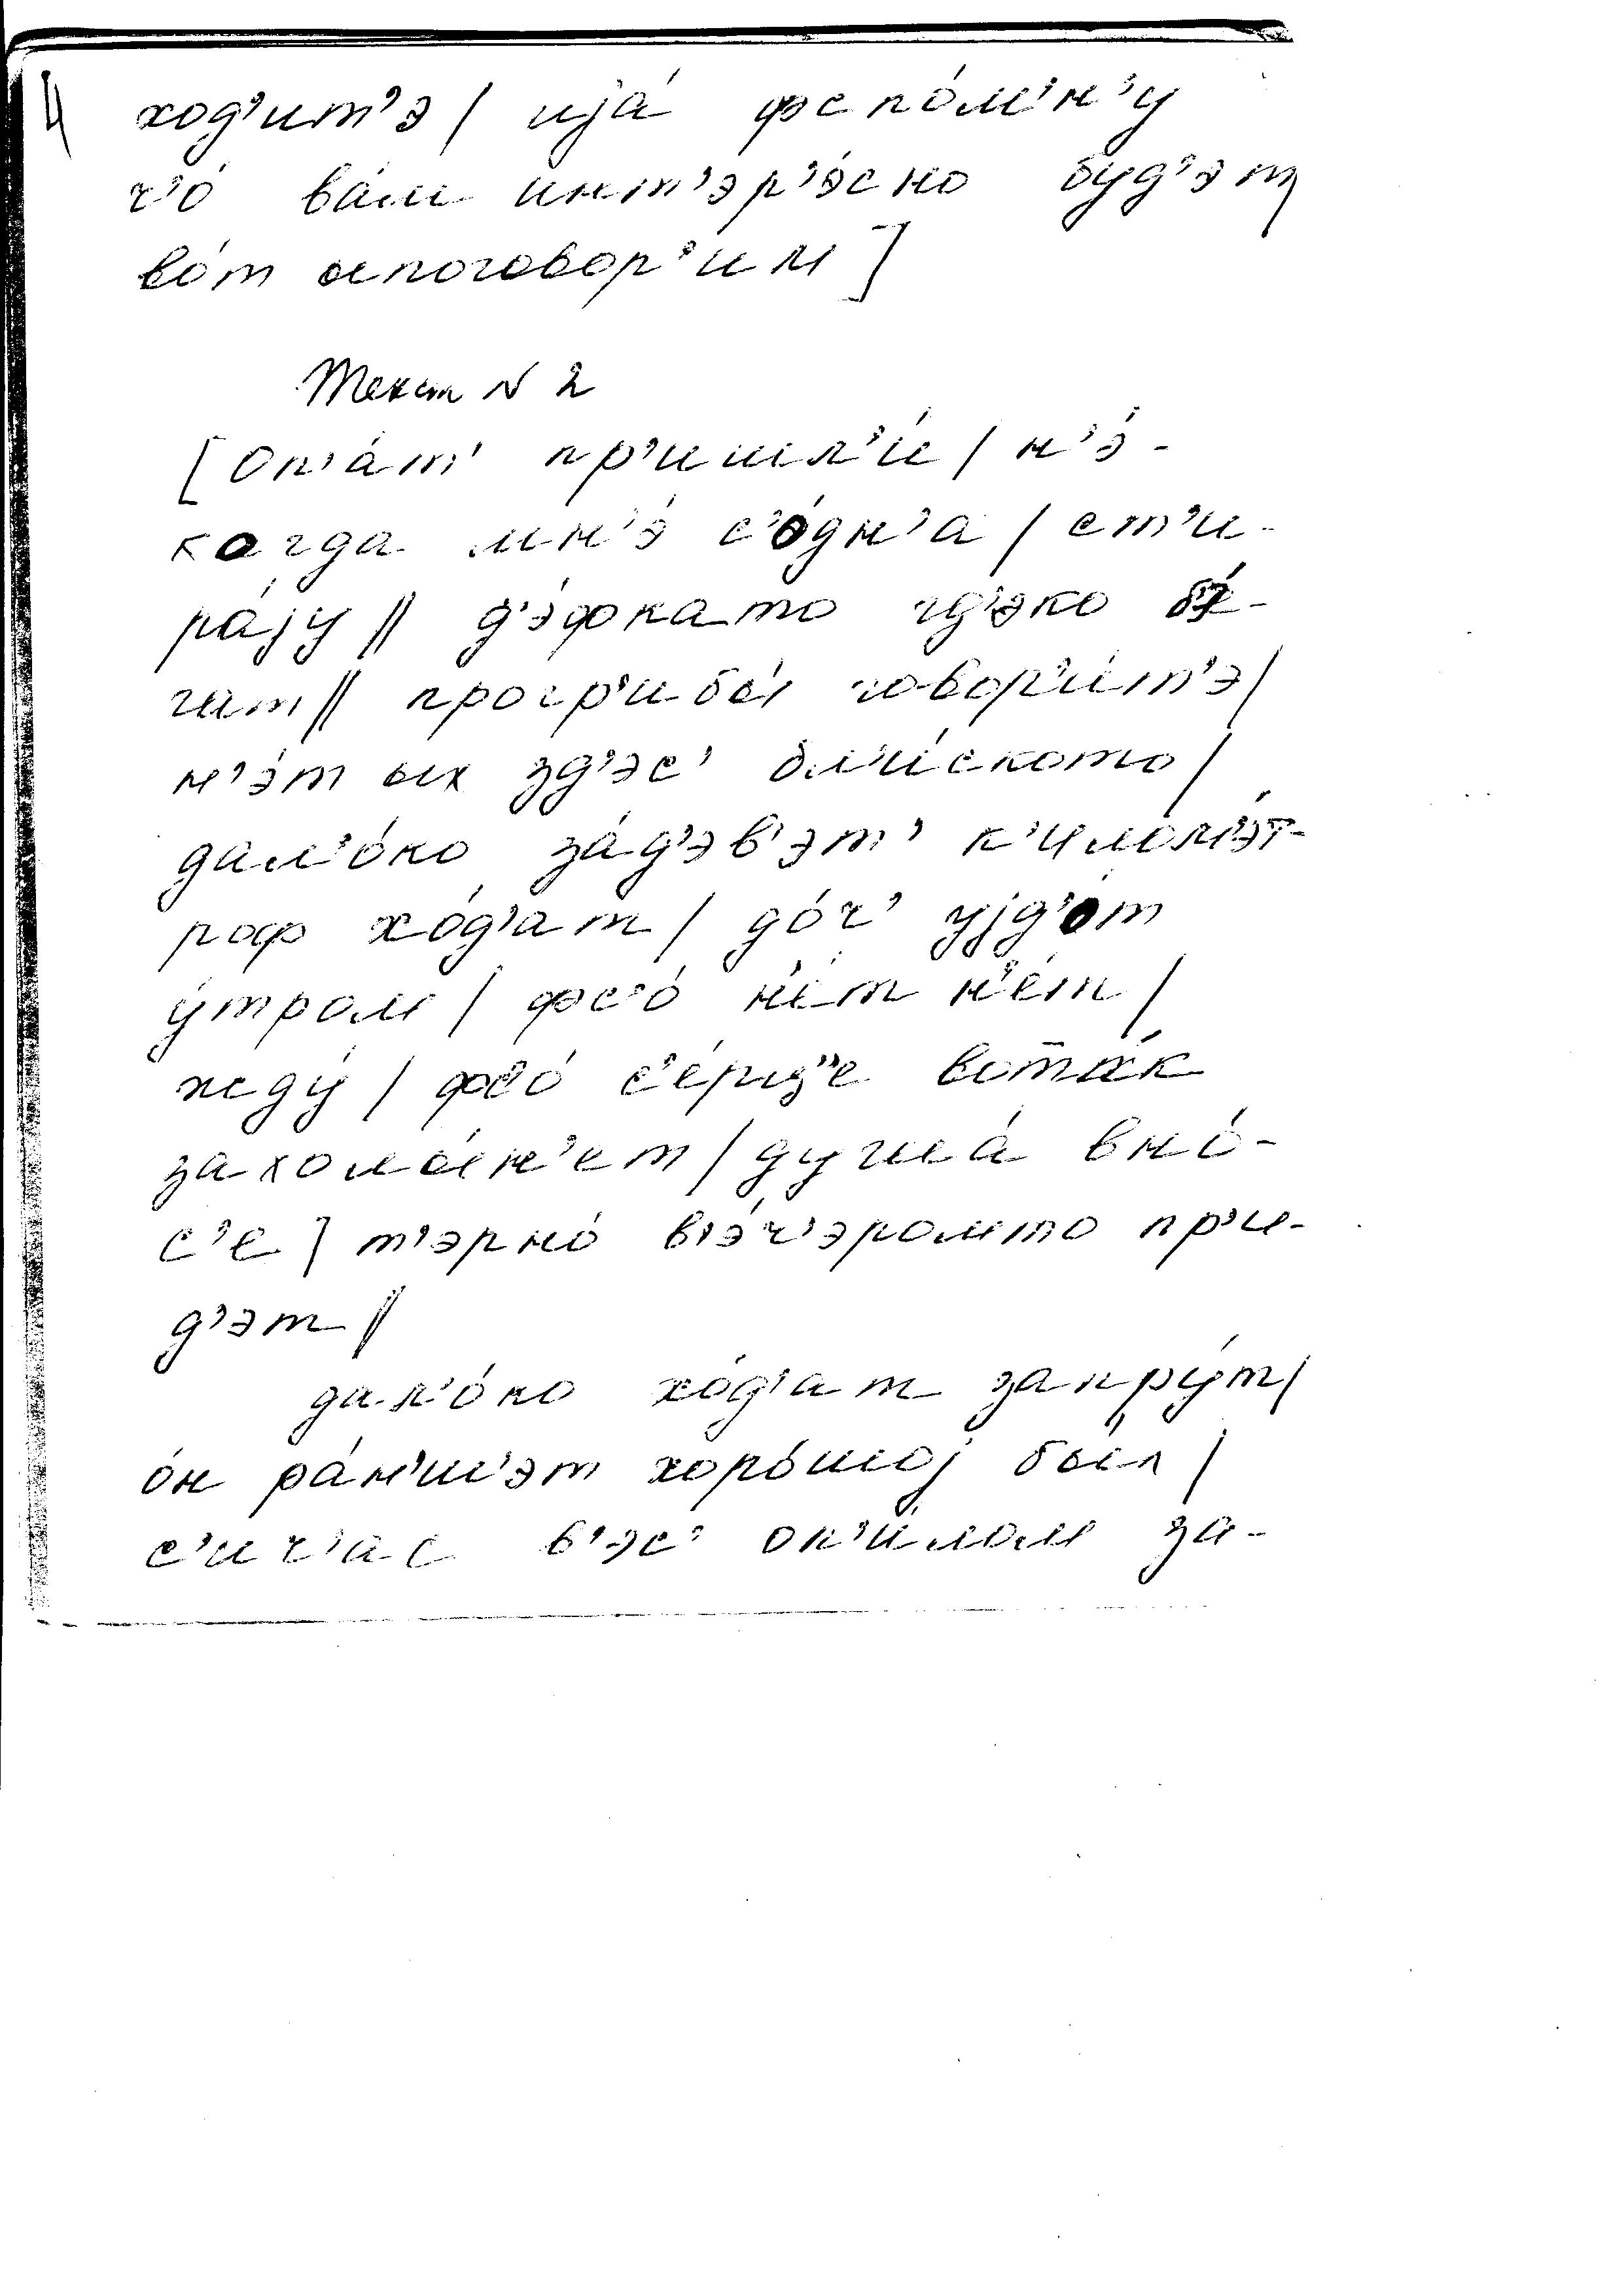 4
ход’ит’э / ијá фспóм’н’у
ч’ó вáм инт’эр’э́сно бýд’эт
вóт ыпоговор’им]
Текст N 2
[Оп’áт’ пр’ишл’и́ / н’э́-
когда мн’э́ с’óдн’а / ст’и-
рájу // д’э́фкато гд’эко б’э́-
гат // прогр’ибы́ говор’и́т’э /
н’э́т ых зд’эс’ бл’и́ското /
дал’óко зáд’эв’эт’ к’илом’эт-
роф хóд’ат / дóч’ ујд’óт
ýтром / фс’ó н’éт н’éт /
жду́ / фс’ó с’éрц’е вотáк
захолы́н’ет / душá внó-
с’е] т’эрнó в’э́ч’эромто пр’и-
д’эт //
дал’óко хóд’ат запру́т /
óн рáн’ш’эт хорóшој бы́л /
с’ич’áс в’эс’ ок’и́лом за-